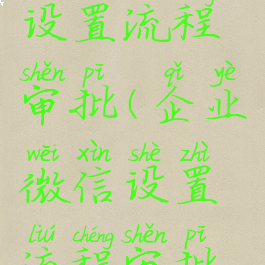 设置流程
shěn pī qǐ yè
审批(企业
wēi xìn shè zhì
微信设置
liú chéng shěn pī
流程审批